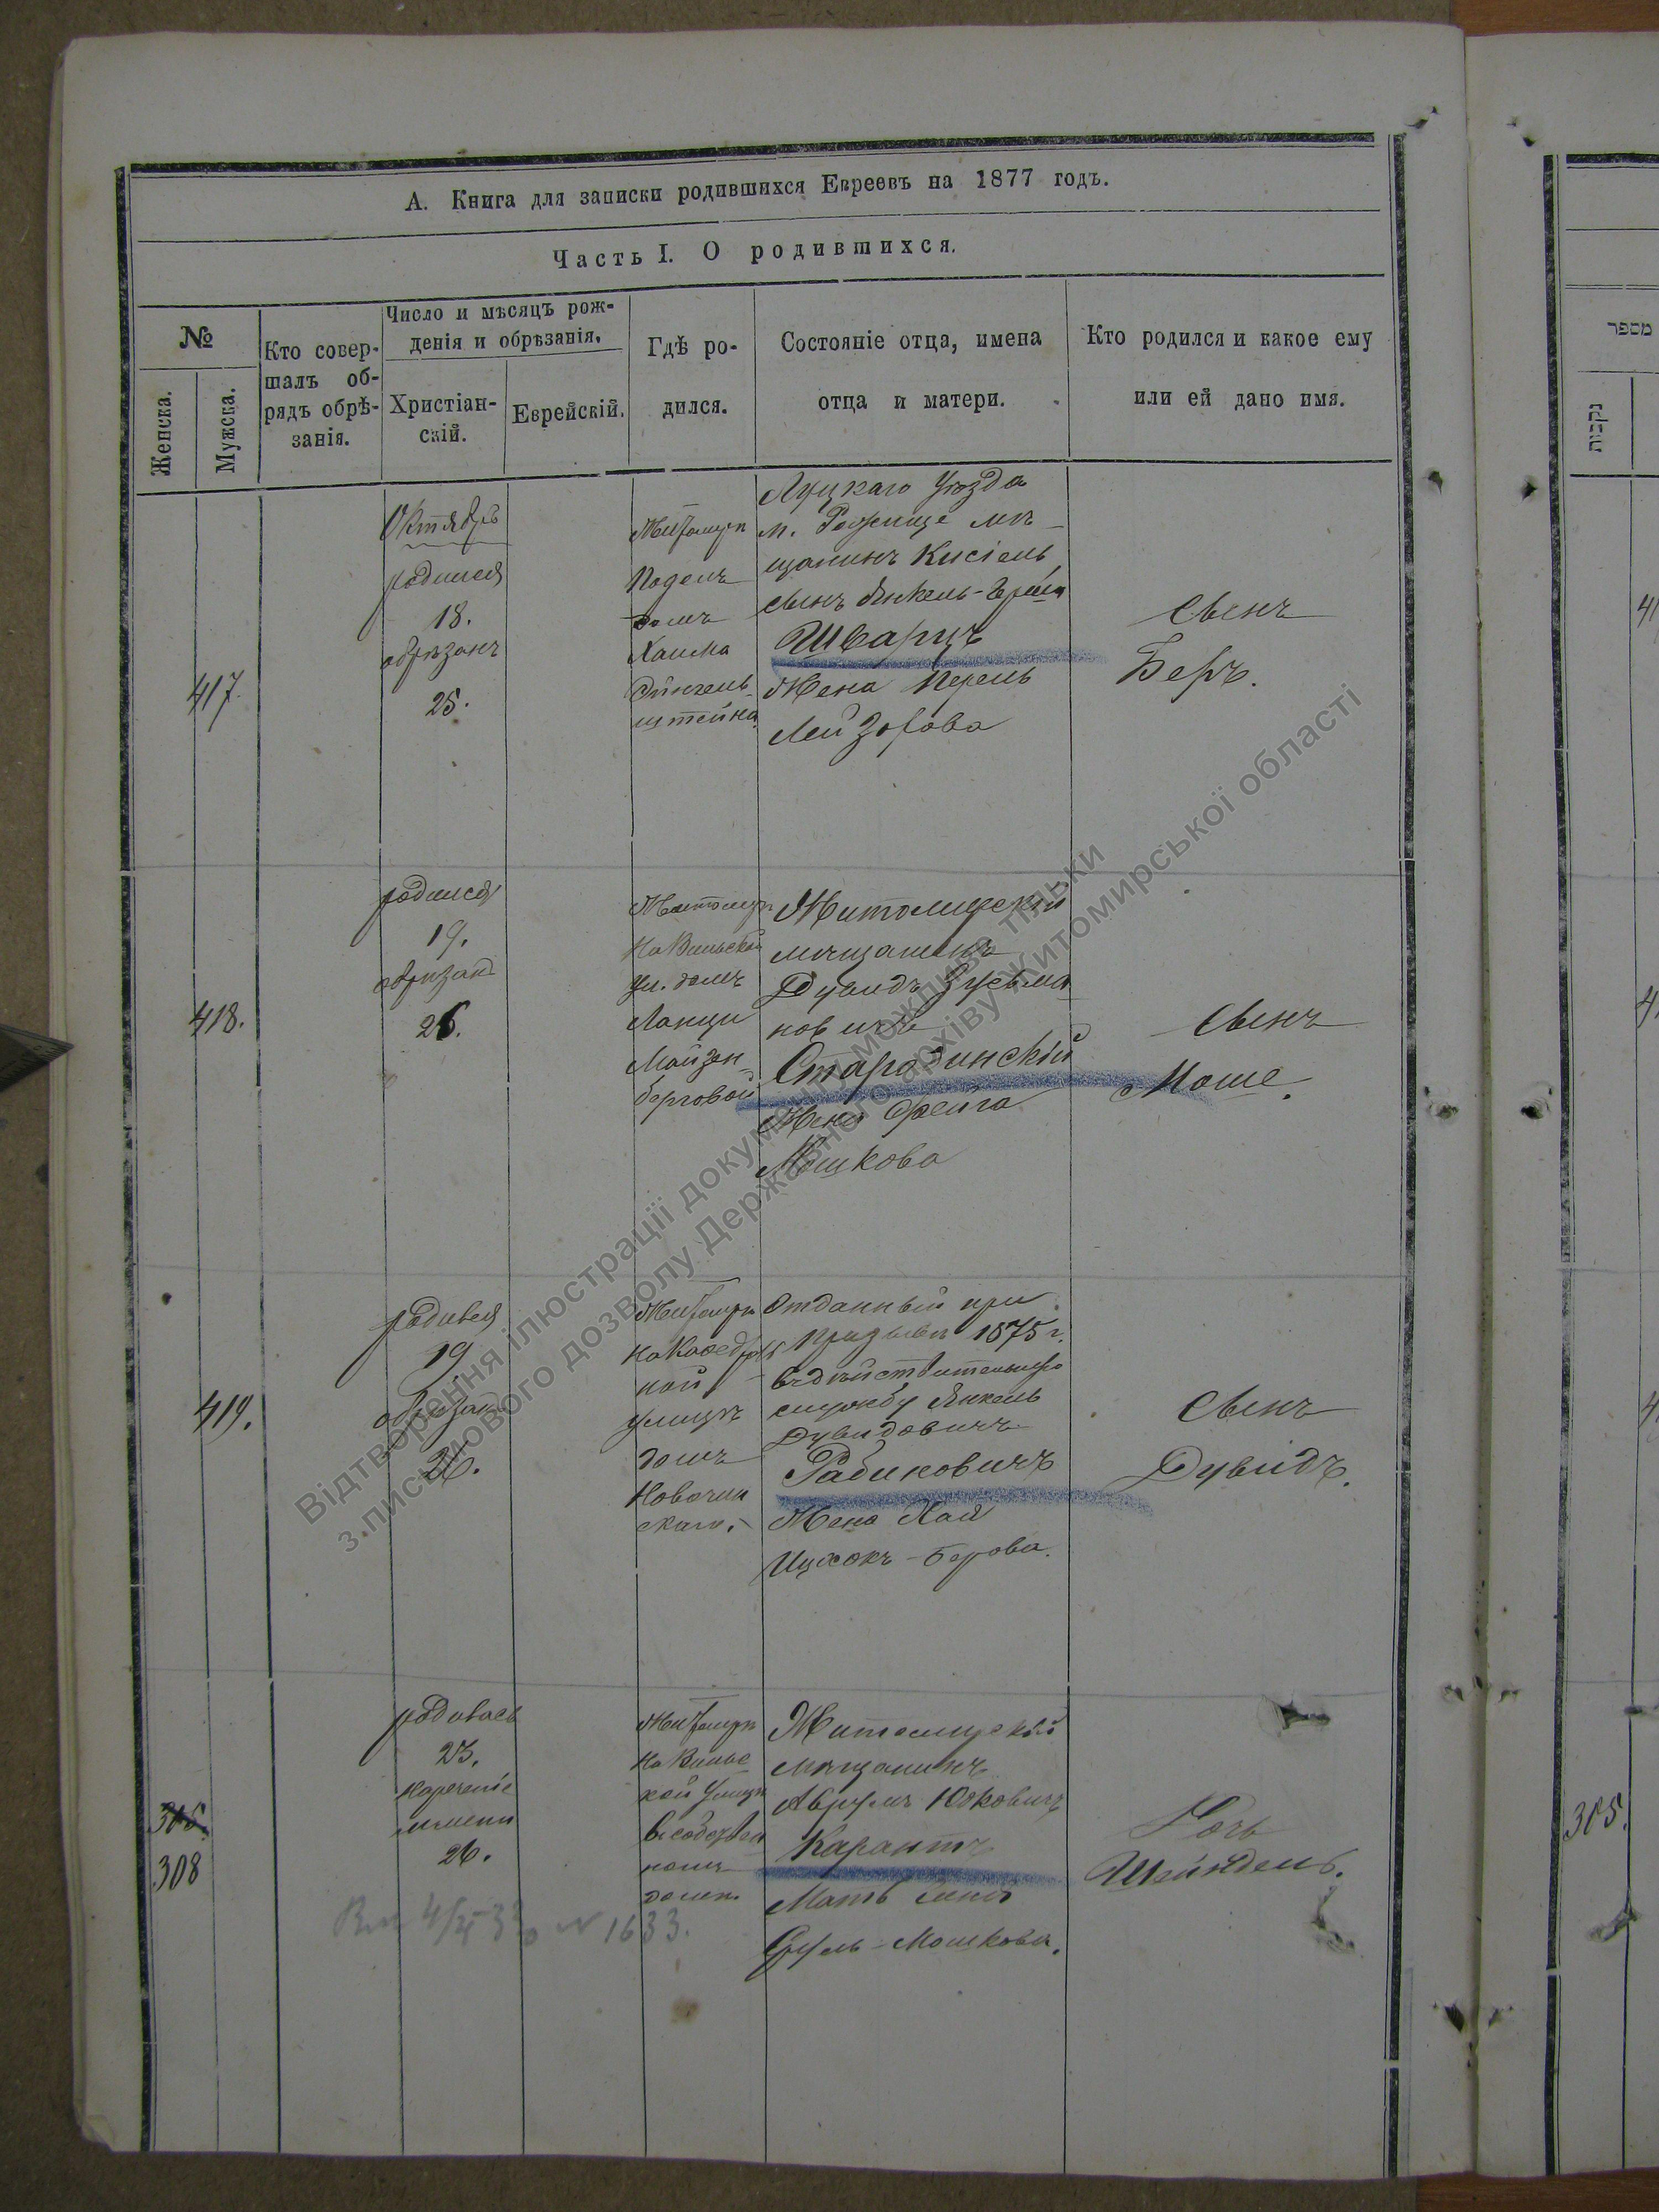 А. Книга для записки родившихся Евреевъ на 1877 годъ.
Часть I. О родившихся.
№
Женска.
Мужска.
Кто совер-
шалъ об-
рядъ обрѣ-
занія.
Число и мѣсяцъ рож-
денія и обрѣзанія.
Христіан-
скій.
Еврейскій.
Гдѣ ро-
дился.
Состояніе отца, имена
отца и матери.
Кто родился и какое ему
или ей дано имя.
417.
Октябрь
родился
18.
обрѣзанъ
25.
Житомірѣ
Подолъ
домъ
Хаима
штейна
Луцкаго Уѣзда
м. Рожище мѣ-
щанинъ Кисіель
сынъ Янкель-
Шварцъ
Жена Перель
Лейзорова
Сынъ
Беръ.
418.
родился
19.
обрѣзанъ
26.
Житомірѣ
На Вильской
ул. домъ
Майзен-
берговой
Житомирскій
мѣщанинъ
Дувидъ Зусьма
новичъ
Стародинскій
Жена Фейга
Мошкова
Сынъ
Моше.
419.
родился
19
обрѣзанъ
26.
Житомірѣ
на Кафедраль
ной
улицѣ
домъ
скаго.
Отданный при
призывѣ 1875 г.
въ дѣйствительную
службу Янкель
Дувидовичъ
Рабиновичъ
Жена Хая
Ицхокъ-Берова.
Сынъ
Дувидъ.
305.
308
родилась
23.
нареченіе
имени
26.
Житомірѣ
На Вильс
кой Улицѣ
въ собствен
номъ
домѣ.
Житомирскій
мѣщанинъ
Аврумъ Юковичъ
Карантъ
Мать
Сруль-Мошкова.
Дочь
Шейндель.
N 1633.
Відтворення ілюстрації документу можливе тільки
з письмового дозволу Державного архіву Житомирської області
מספר
נקבות
305.